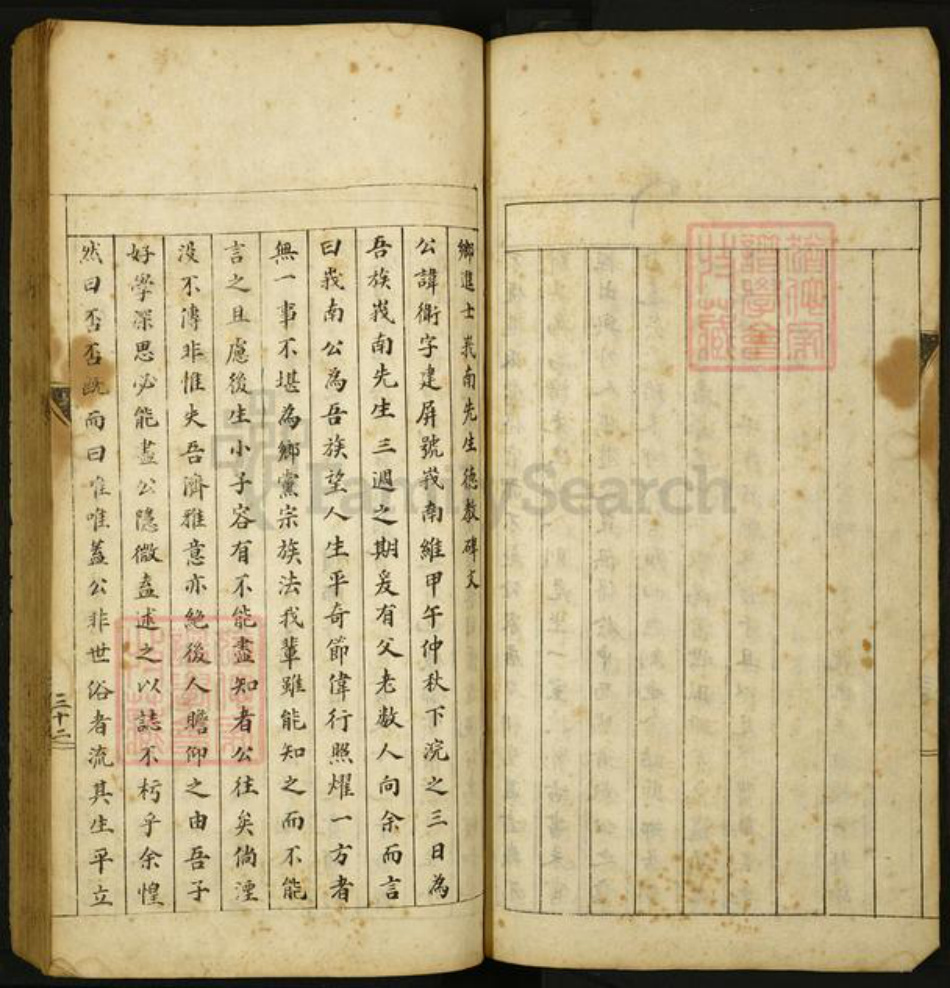 鄉進士峩南先生德教碑文
公諱衛字建屏號峩南維甲午仲秋下浣之三日為
吾族峩南先生三週之期爰有父老數人向余而言
曰峩南公為吾族望人生平奇節偉行照耀一方者
無一事不堪為鄉黨宗族法我輩雖能知之而不能
言之且慮後生小子容有不能盡知者公往矣倘湮
没不傳非惟失吾濟雅意亦絶後人瞻仰之由吾子
好學深思必能盡公隱微盍述之以誌不朽乎余惶
然曰否否既而曰唯唯蓋公非世俗者流其生平立
三十二
FamilySearch